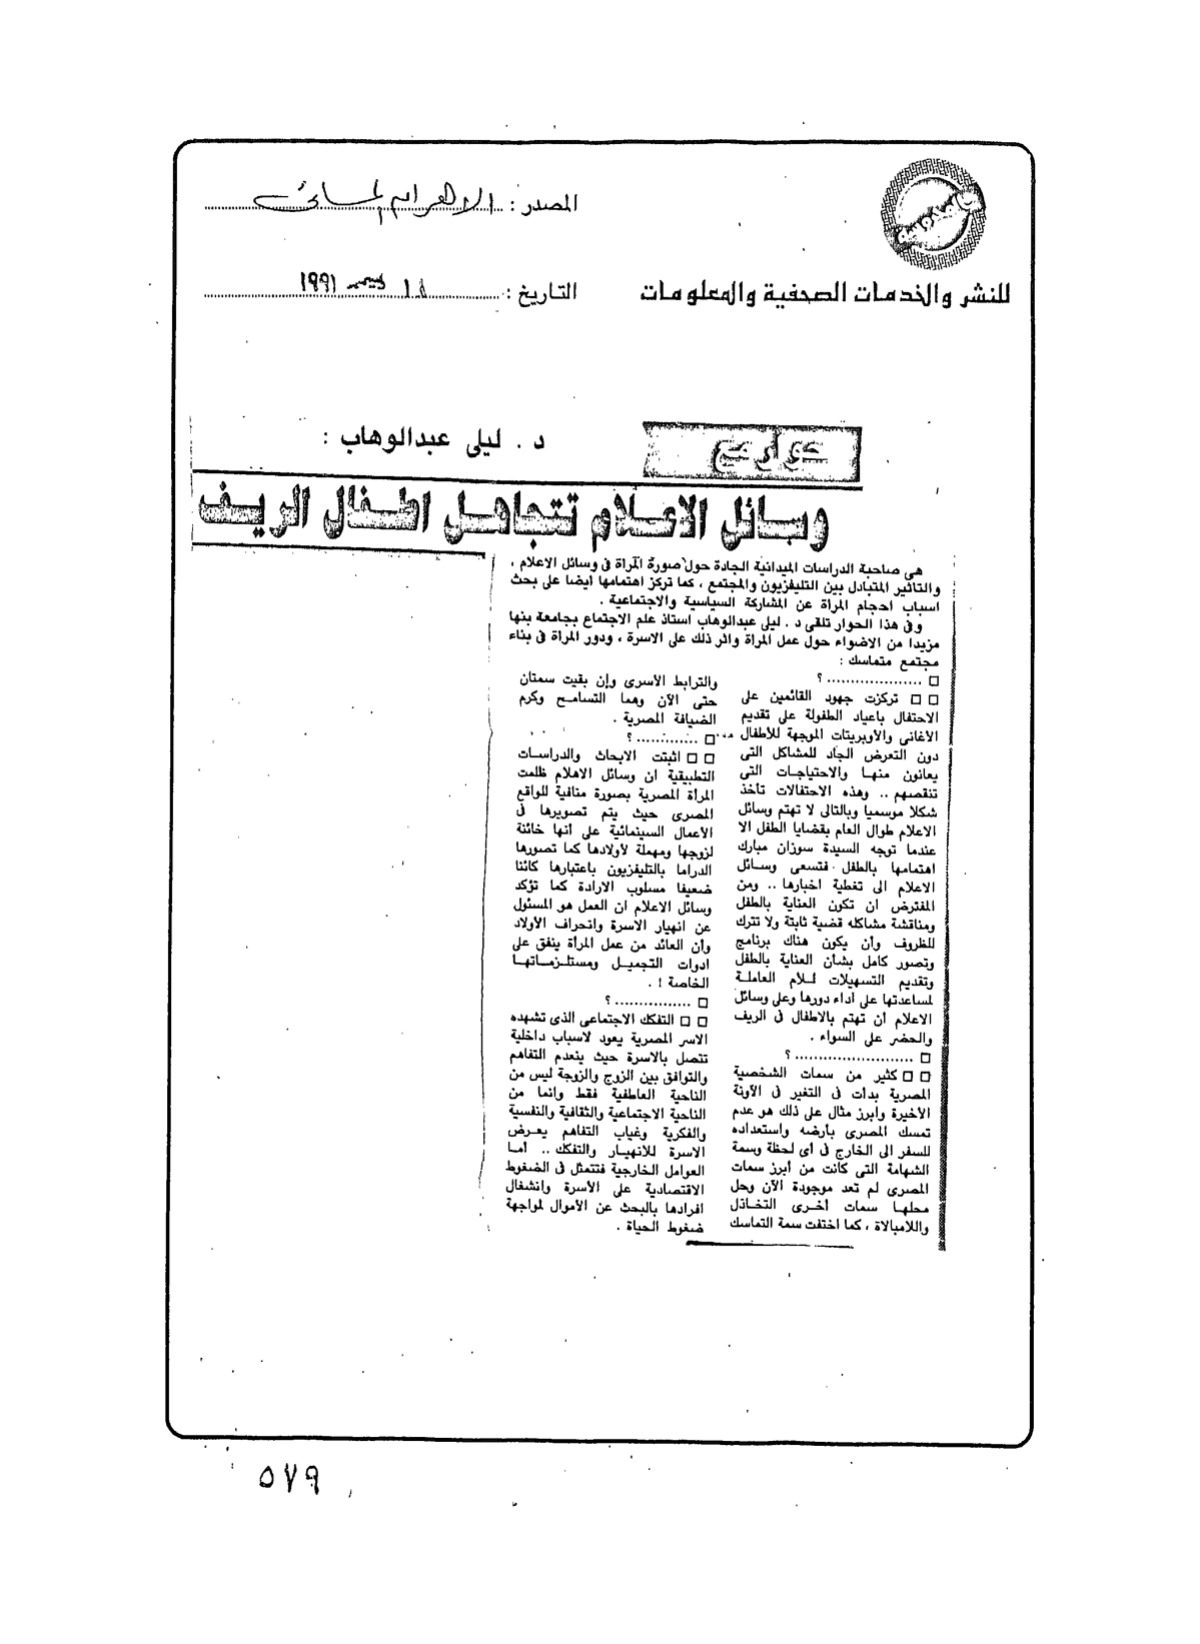 المصدر : الاهرام المسائى
للنشر والخدمات الصحفية والمعلومات
التاريخ : ١٨ ديسمبر ١٩٩١
حوار مع
د . ليلى عبدالوهاب :
وسائل الاعلام تتجاهل اطفال الريف
هى صاحبة الدراسات الميدانية الجادة حول صورة المرأة فى وسائل الاعلام ،
والتأثير المتبادل بين التليفزيون والمجتمع ، كما تركز اهتمامها ايضا على بحث
اسباب احجام المرأة عن المشاركة السياسية والاجتماعية .
وفى هذا الحوار تلقى د . ليلى عبدالوهاب استاذ علم الاجتماع بجامعة بنها
مزيدا من الاضواء حول عمل المرأة واثر ذلك على الاسرة ، ودور المرأة فى بناء
مجتمع متماسك :
□ ................... ؟
□ □ تركزت جهود القائمين على
الاحتفال باعياد الطفولة على تقديم
الأغانى والأوبريتات الموجهة للأطفال
دون التعرض الجاد للمشاكل التى
يعانون منها والاحتياجات التى
تنقصهم .. وهذه الاحتفالات تأخذ
شكلا موسميا وبالتالى لا تهتم وسائل
الاعلام طوال العام بقضايا الطفل الا
عندما توجه السيدة سوزان مبارك
اهتمامها بالطفل فتسعى وسائل
الاعلام الى تغطية اخبارها .. ومن
المفترض ان تكون العناية بالطفل
ومناقشة مشاكله قضية ثابتة ولا تترك
للظروف وأن يكون هناك برنامج
وتصور كامل بشأن العناية بالطفل
وتقديم التسهيلات للأم العاملة
لمساعدتها على أداء دورها وعلى وسائل
الاعلام أن تهتم بالاطفال فى الريف
والحضر على السواء .
□ ........................ ؟
□ □ كثير من سمات الشخصية
المصرية بدأت فى التغير فى الآونة
الأخيرة وأبرز مثال على ذلك هو عدم
تمسك المصرى بأرضه واستعداده
للسفر الى الخارج فى أى لحظة وسمة
الشهامة التى كانت من أبرز سمات
المصرى لم تعد موجودة الآن وحل
محلها سمات أخرى التخاذل
واللامبالاة ، كما اختفت سمة التماسك
والترابط الأسرى وإن بقيت سمتان
حتى الآن وهما التسامح وكرم
الضيافة المصرية .
□ ............ ؟
□ □ اثبتت الابحاث والدراسات
التطبيقية ان وسائل الاعلام ظلمت
المرأة المصرية بصورة منافية للواقع
المصرى حيث يتم تصويرها فى
الأعمال السينمائية على أنها خائنة
لزوجها ومهملة لأولادها كما تصورها
الدراما بالتليفزيون باعتبارها كائنا
ضعيفا مسلوب الارادة كما تؤكد
وسائل الاعلام ان العمل هو المسئول
عن انهيار الاسرة وانحراف الأولاد
وأن العائد من عمل المرأة ينفق على
ادوات التجميل ومستلزماتها
الخاصة ! .
□ ................ ؟
□ □ التفكك الاجتماعى الذى تشهده
الأسر المصرية يعود لاسباب داخلية
تتصل بالاسرة حيث ينعدم التفاهم
والتوافق بين الزوج والزوجة ليس من
الناحية العاطفية فقط وانما من
الناحية الاجتماعية والثقافية والنفسية
والفكرية وغياب التفاهم يعرض
الاسرة للانهيار والتفكك .. أما
العوامل الخارجية فتتمثل فى الضغوط
الاقتصادية على الأسرة وانشغال
افرادها بالبحث عن الأموال لمواجهة
ضغوط الحياة .
٥٧٩